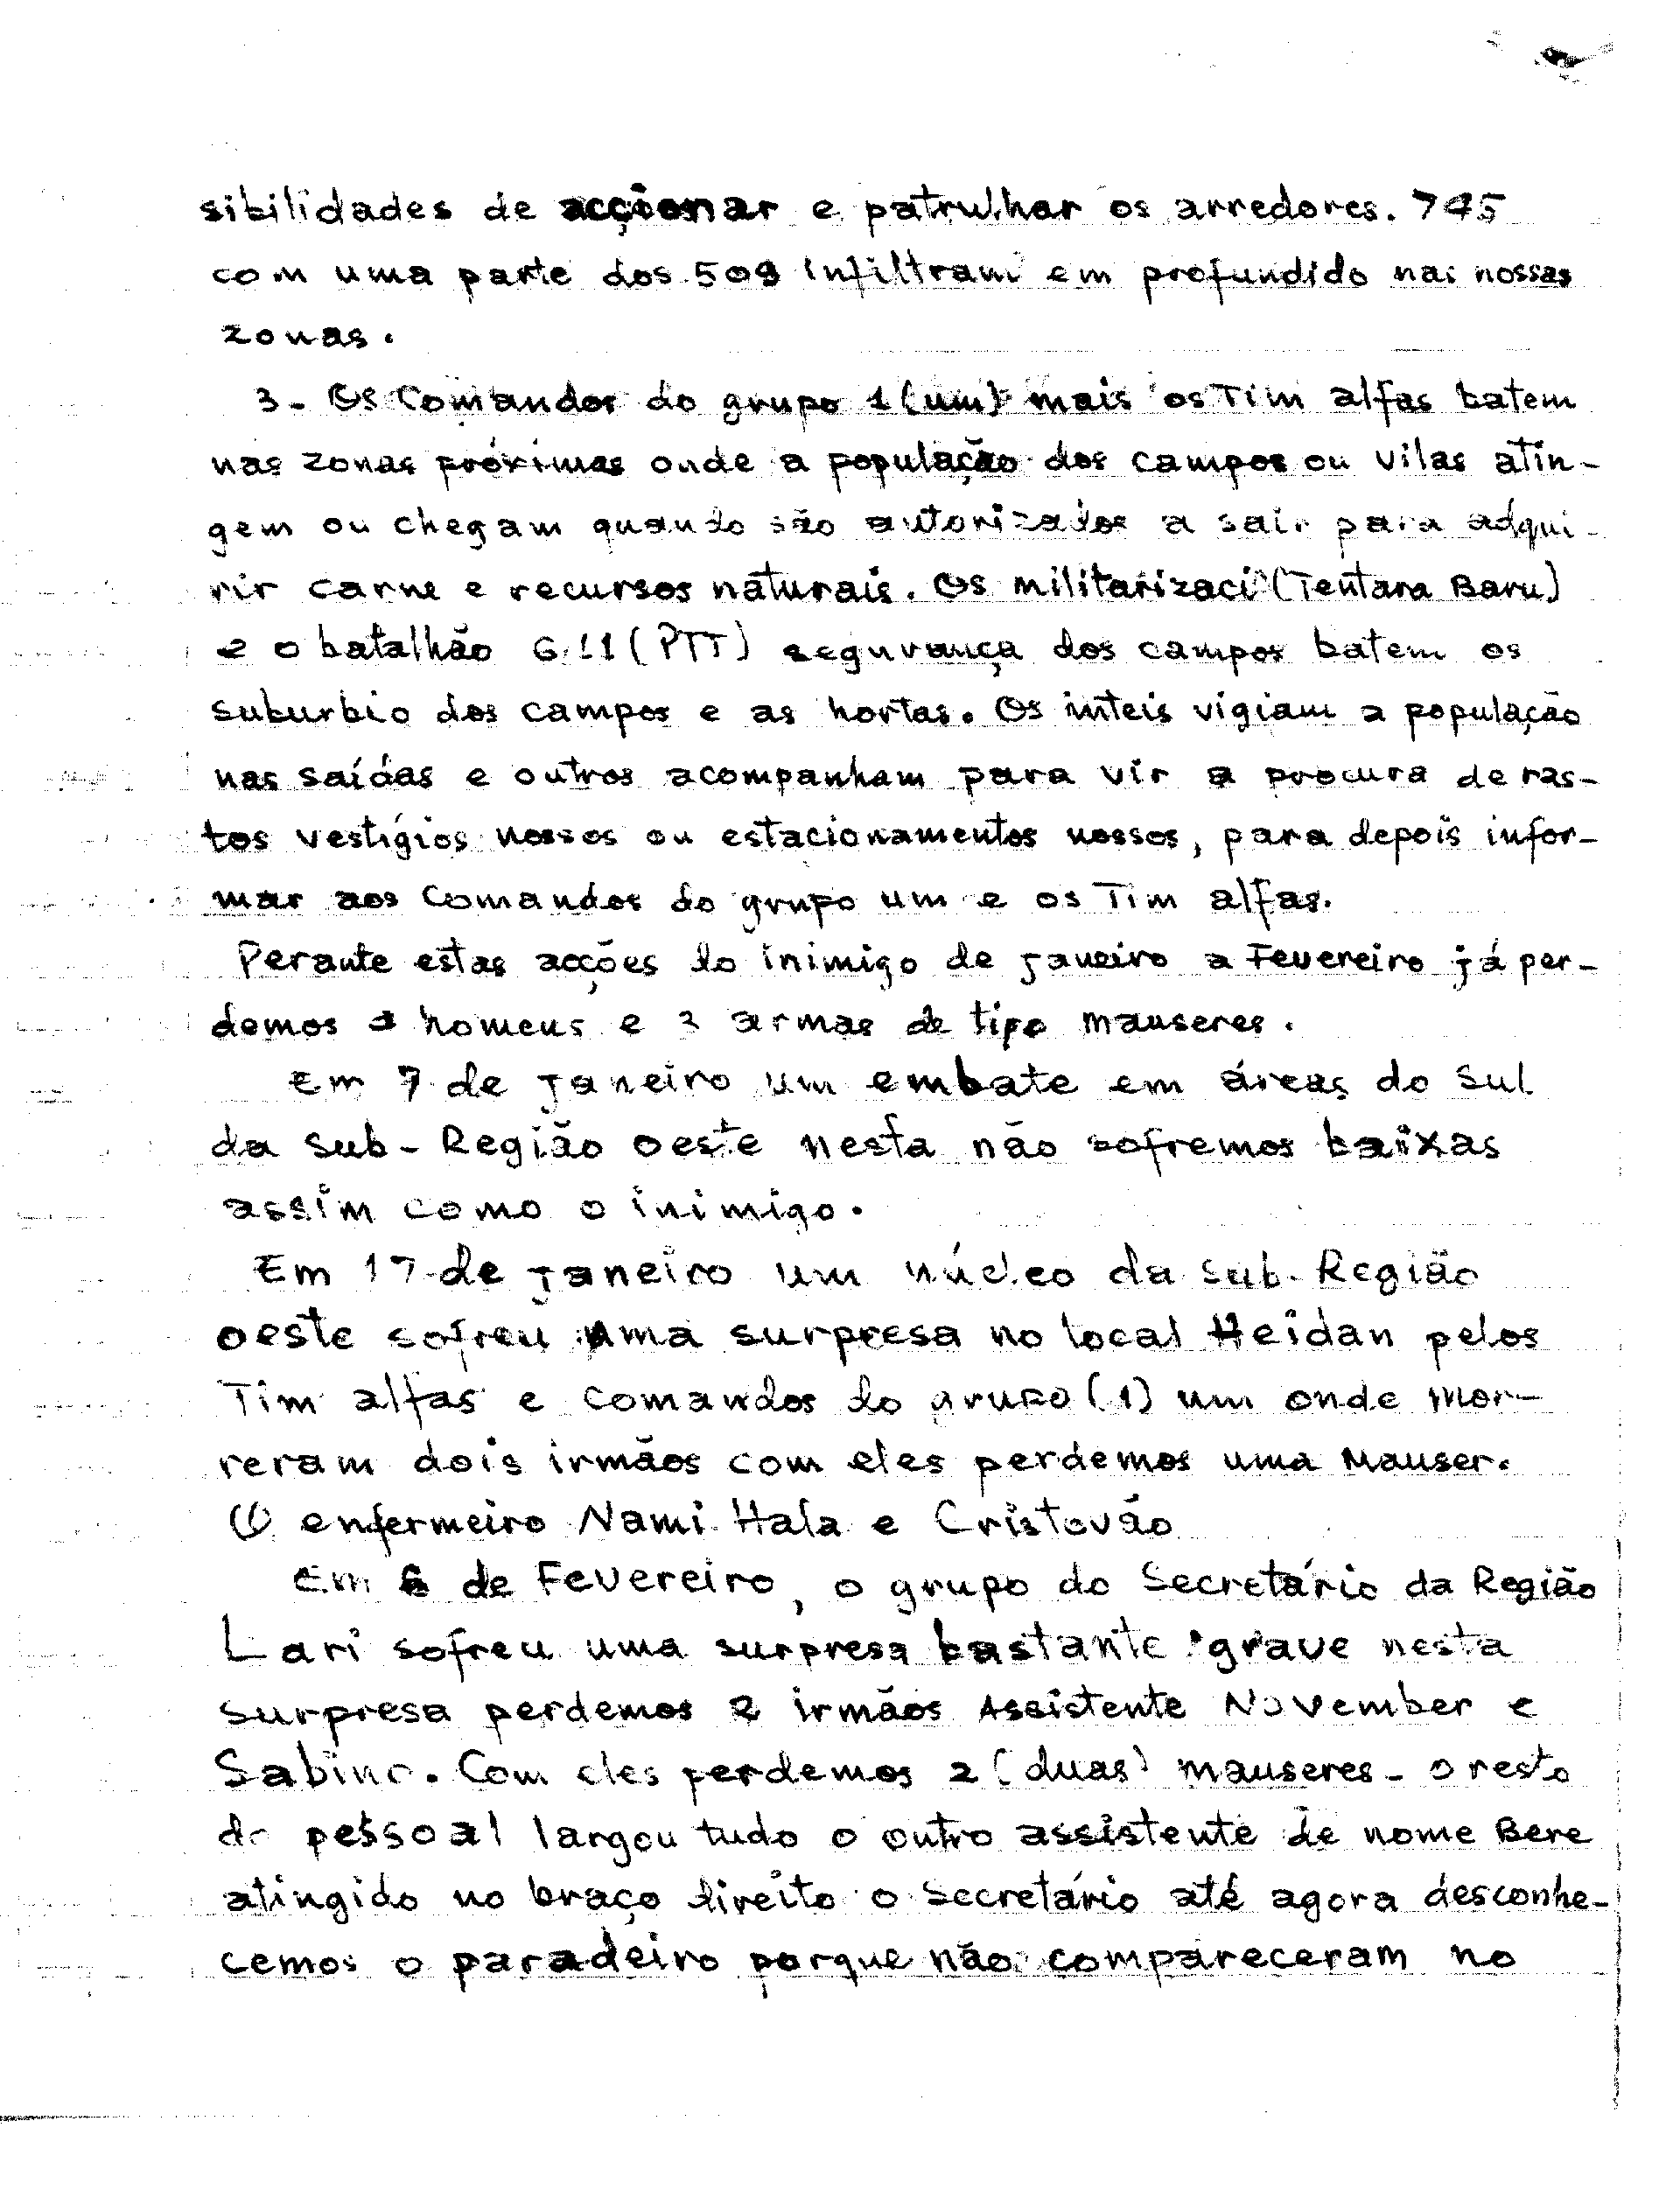 sibilidades de accionar e patrulhar os arredores. 745
com uma parte dos 509 infiltram em profundido nas nossas
zonas.
3 - Os Comandos do grupo 1 (um) mais os Tim alfas batem
nas zonas próximas onde a população dos campos ou vilas atin-
gem ou chegam quando são autorizados a sair para adqui-
rir carne e recursos naturais. Os militarizaci (Tentara Baru)
e o batalhão 611 (PTT) segurança dos campos batem os
suburbio dos campos e as hortas. Os inteis vigiam a população
nas saídas e outros acompanham para vir a procura de ras-
tos vestígios nossos ou estacionamentos nossos, para depois infor-
mar aos Comandos do grupo um e os Tim alfas.
Perante estas acções do inimigo de janeiro a Fevereiro já per-
demos homens e 3 armas de tipo mauseres.
Em 7 de janeiro um embate em áreas do Sul
da Sub-Região oeste nesta não sofremos baixas
assim como o inimigo.
Em 17 de janeiro um núcleo da Sub-Região
oeste sofreu uma surpresa no local Heidan pelos
Tim alfas e comandos do grupo (1) um onde mor-
reram dois irmãos com eles perdemos uma Mauser.
O enfermeiro Nami Hala e Cristovão
Em 6 de Fevereiro, o grupo do Secretário da Região
Lari sofreu uma surpresa bastante grave nesta
surpresa perdemos 2 irmãos Assistente November e
Sabino. Com eles perdemos 2 (duas) mauseres - o resto
do pessoal largou tudo o outro assistente de nome Bere
atingido no braço direito o Secretário até agora desconhe-
cemos o paradeiro porque não compareceram no